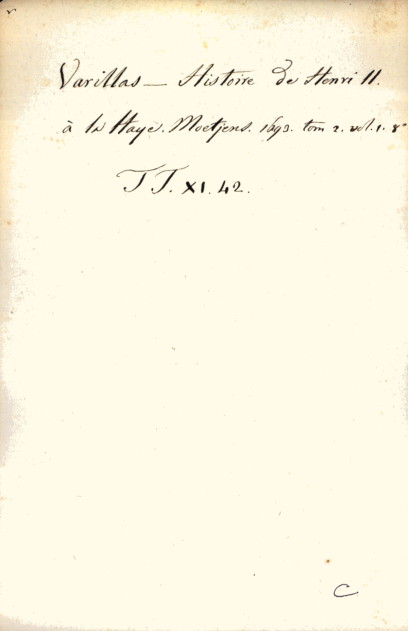 Varillas — Histoire de Henri II.
à la Haye. Moetjens. 1693. tom 2. vol. 1. 8°
TT. XI. 42.
C